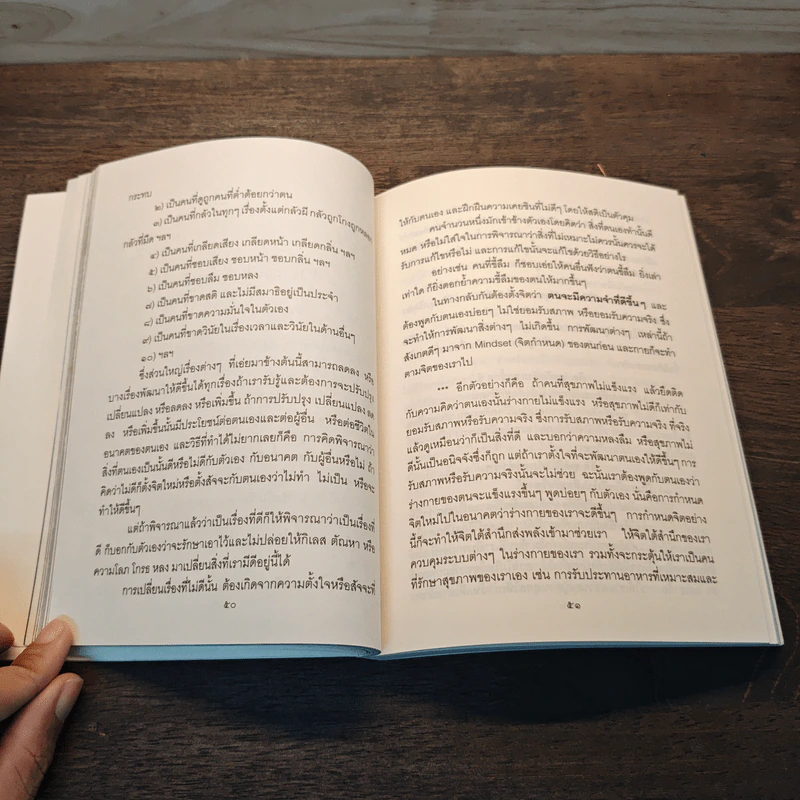 กระทบ
๒) เป็นคนที่ดูถูกคนที่ต่ำต้อยกว่าตน
๓) เป็นคนที่กลัวในทุกๆ เรื่องตั้งแต่กลัวผี กลัวถูกโกงถูกหลอก
กลัวที่มืด ฯลฯ
๔) เป็นคนที่เกลียดเสียง เกลียดหน้า เกลียดกลิ่น ฯลฯ
๕) เป็นคนที่ชอบเสียง ชอบหน้า ชอบกลิ่น ฯลฯ
๖) เป็นคนที่ชอบลืม ชอบหลง
๗) เป็นคนที่ขาดสติ และไม่มีสมาธิอยู่เป็นประจำ
๘) เป็นคนที่ขาดความมั่นใจในตัวเอง
๙) เป็นคนที่ขาดวินัยในเรื่องเวลาและวินัยในด้านอื่นๆ
๑๐) ฯลฯ
ซึ่งส่วนใหญ่เรื่องต่างๆ ที่เอ่ยมาข้างต้นนี้สามารถลดลง หรือ
บางเรื่องพัฒนาให้ดีขึ้นได้ทุกเรื่องถ้าเรารับรู้และต้องการจะปรับปรุง
เปลี่ยนแปลง หรือลดลง หรือเพิ่มขึ้น ถ้าการปรับปรุง เปลี่ยนแปลง ลด
ลง หรือเพิ่มขึ้นนั้นมีประโยชน์ต่อตนเองและต่อผู้อื่น หรือต่อชีวิตใน
อนาคตของตนเอง และวิธีที่ทำได้ไม่ยากเลยก็คือ การคิดพิจารณาว่า
สิ่งที่ตนเองเป็นนั้นดีหรือไม่ดีกับตัวเอง กับอนาคต กับผู้อื่นหรือไม่ ถ้า
คิดว่าไม่ดีก็ตั้งจิตใหม่หรือตั้งสัจจะกับตนเองว่าไม่ทำ ไม่เป็น หรือจะ
ทำให้ดีขึ้นๆ
แต่ถ้าพิจารณาแล้วว่าเป็นเรื่องที่ดีก็ให้พิจารณาว่าเป็นเรื่องที่
ดี ก็บอกกับตัวเองว่าจะรักษาเอาไว้และไม่ปล่อยให้กิเลส ตัณหา หรือ
ความโลภ โกรธ หลง มาเปลี่ยนสิ่งที่เรามีดีอยู่นี้ได้
การเปลี่ยนเรื่องที่ไม่ดีนั้น ต้องเกิดจากความตั้งใจหรือสัจจะที่
๕๐
ให้กับตนเอง และฝึกฝืนความเคยชินที่ไม่ดีๆ โดยให้สติเป็นตัวคุม
คนจำนวนหนึ่งมักเข้าข้างตัวเองโดยคิดว่า สิ่งที่ตนเองทำนั้นดี
หมด หรือไม่ใส่ใจในการพิจารณาว่าสิ่งที่ไม่เหมาะไม่ควรนั้นควรจะได้
รับการแก้ไขหรือไม่ และการแก้ไขนั้นจะแก้ไขด้วยวิธีอย่างไร
อย่างเช่น คนที่ขี้ลืม ก็ชอบเอ่ยให้คนอื่นฟังว่าตนขี้ลืม ยิ่งเล่า
เท่าใด ก็ยิ่งตอกย้ำความขี้ลืมของตนให้มากขึ้นๆ
ในทางกลับกันต้องตั้งจิตว่า ตนจะมีความจำที่ดีขึ้นๆ และ
ต้องพูดกับตนเองบ่อยๆ ไม่ใช่ยอมรับสภาพ หรือยอมรับความจริง ซึ่ง
จะทำให้การพัฒนาสิ่งต่างๆ ไม่เกิดขึ้น การพัฒนาต่างๆ เหล่านี้ถ้า
สังเกตดีๆ มาจาก Mindset (จิตกำหนด) ของตนก่อน และกายก็จะทำ
ตามจิตของเราไป
*** อีกตัวอย่างก็คือ ถ้าคนที่สุขภาพไม่แข็งแรง แล้วยึดติด
กับความคิดว่าตนเองนั้นร่างกายไม่แข็งแรง หรือสุขภาพไม่ดีก็เท่ากับ
ยอมรับสภาพหรือรับความจริง ซึ่งการรับสภาพหรือรับความจริง ที่จริง
แล้วดูเหมือนว่าก็เป็นสิ่งที่ดี และบอกว่าความหลงลืม หรือสุขภาพไม่
ดีนั้นเป็นอนิจจังซึ่งก็ถูก แต่ถ้าเราตั้งใจที่จะพัฒนาตนเองให้ดีขึ้นๆ การ
รับสภาพหรือรับความจริงนั้นจะไม่ช่วย ฉะนั้นเราต้องพูดกับตนเองว่า
ร่างกายของตนจะแข็งแรงขึ้นๆ พูดบ่อยๆ กับตัวเอง นั่นคือการกำหนด
จิตใหม่ไปในอนาคตว่าร่างกายของเราจะดีขึ้นๆ การกำหนดจิตอย่าง
นี้ก็จะทำให้จิตใต้สำนึกส่งพลังเข้ามาช่วยเรา ให้จิตใต้สำนึกของเรา
ควบคุมระบบต่างๆ ในร่างกายของเรา รวมทั้งจะกระตุ้นให้เราเป็นคน
ที่รักษาสุขภาพของเราเอง เช่น การรับประทานอาหารที่เหมาะสมและ
๕๑